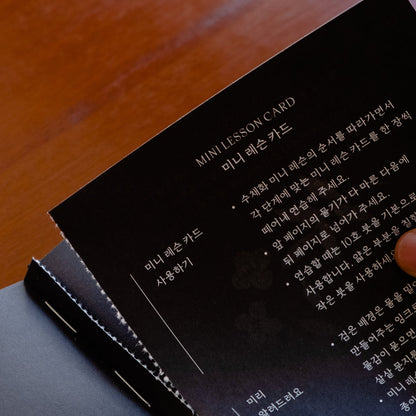 MINI LESSON CARD
미니 레슨 카드
미니 레슨 카드
사용하기
• 수채화 미니 레슨의 순서를 따라가면서
각 단계에 맞는 미니 레슨 카드를 한 장씩
떼어내 연습해 주세요.
• 앞 페이지의 물기가 다 마른 다음에
뒤 페이지로 넘어가 주세요.
• 연습할 때는 10호 붓을 기본으로
사용합니다. 얇은 부분을
작은 붓을 사용하세요
미리
알려드려요
• 검은 배경은 물을
만들어주는 잉크로
물감이 묻으면
살살 문지
• 미니 레
종이